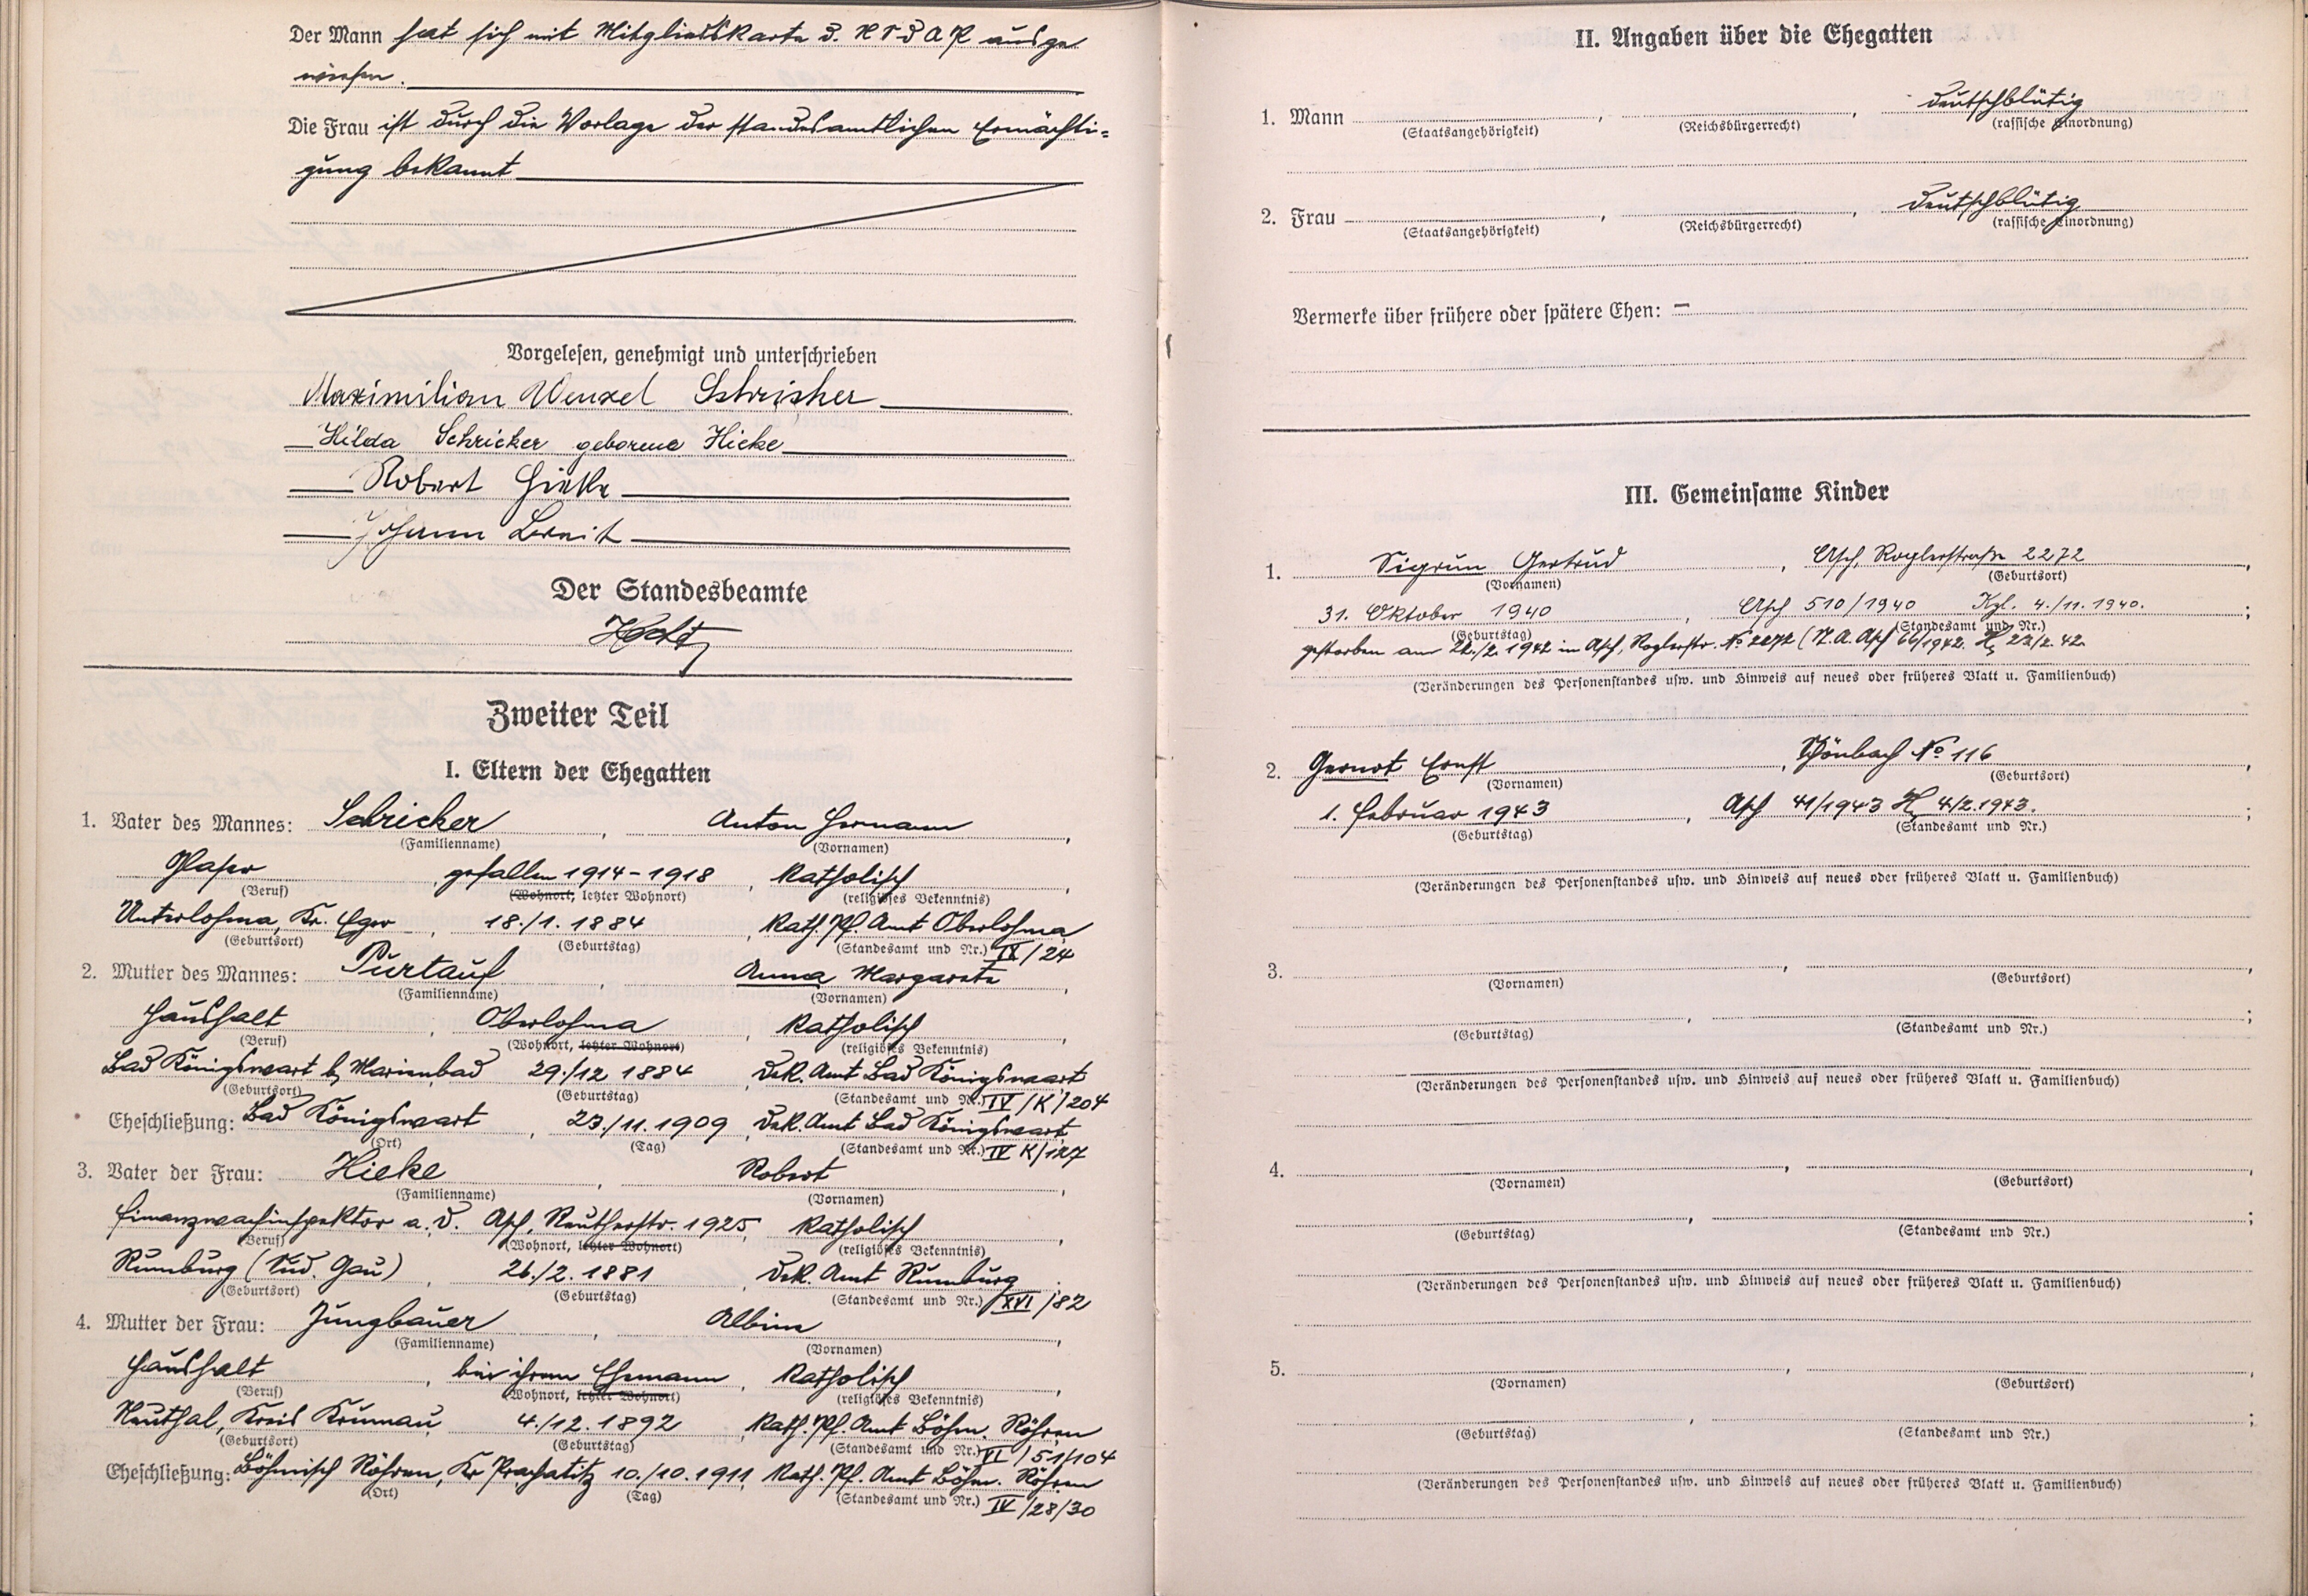 Der Mann hat sich mit Mitgliedskarte d. NSDAP ausge
wiesen.
Die Frau ist durch die Vorlage der standesamtlichen Ermächti=
gung bekannt
Vorgelesen, genehmigt und unterschrieben
Maximilian Wenzel Schricker
Hilda Schricker geborene Hieke
Robert Hieke
Johann
Der Standesbeamte
Zweiter Teil
I. Eltern der Ehegatten
1. Vater des Mannes: Schricker, Anton Hermann,
(Familienname) (Vornamen)
Glaser, gefallen 1914-1918, Katholisch,
(Beruf) (Wohnort, letzter Wohnort) (religiöses Bekenntnis)
Unterlohma, Kr. Eger, 18./1. 1884, Kath. Pf. Amt Oberlohma
(Geburtsort) (Geburtstag) (Standesamt und Nr.) IX/24
2. Mutter des Mannes: Purtauf, Anna Margareta,
(Familienname) (Vornamen)
Haushalt, Oberlohma, Katholisch,
(Beruf) (Wohnort, letzter Wohnort) (religiöses Bekenntnis)
Bad Königswart b. Marienbad 29./12 1884, Dek. Amt Bad Königswart
(Geburtsort) (Geburtstag) (Standesamt und Nr.) IV/K/204
Eheschließung: Bad Königswart, 23./11. 1909, Dek. Amt Bad Königswart
(Ort) (Tag) (Standesamt und Nr.) IV K/127
3. Vater der Frau: Hieke, Robert,
(Familienname) (Vornamen)
Finanzwachinspektor a. D. Asch, Reutherstr. 1925, Katholisch,
(Beruf) (Wohnort, letzter Wohnort) (religiöses Bekenntnis)
Rumburg (Sud. Gau), 26./2. 1881, Dek. Amt Rumburg
(Geburtsort) (Geburtstag) (Standesamt und Nr.) XVI/82
4. Mutter der Frau: Jungbauer, Albine,
(Familienname) (Vornamen)
Haushalt, bei ihrem Ehemann, Katholisch,
(Beruf) (Wohnort, letzter Wohnort) (religiöses Bekenntnis)
Neuthal, Kreis Krumau, 4./12. 1892, Kath. Pf. Amt Böhm. Röhren
(Geburtsort) (Geburtstag) (Standesamt und Nr.) VI/51/104
Eheschließung: Böhmisch Röhren, Kr Prachatitz 10./10. 1911, Kath. Pf. Amt Böhm. Röhren
(Ort) (Tag) (Standesamt und Nr.) IV/28/30
II. Angaben über die Ehegatten
1. Mann, , deutschblütig
(Staatsangehörigkeit) (Reichsbürgerrecht) (rassische Einordnung)
2. Frau, , deutschblütig
(Staatsangehörigkeit) (Reichsbürgerrecht) (rassische Einordnung)
Vermerke über frühere oder spätere Ehen: –
III. Gemeinsame Kinder
1. Sigrun Gertrud, Asch, Roglerstraße 2272,
(Vornamen) (Geburtsort)
31. Oktober 1940, Asch 510/1940 4./11. 1940. ;
(Geburtstag) (Standesamt und Nr.)
gestorben am 22./2. 1942 in Asch, Roglerstr. No 2272 (St. A. Asch 66/1942. 23/2. 42.
(Veränderungen des Personenstandes usw. und Hinweis auf neues oder früheres Blatt u. Familienbuch)
2. Gernot Ernst, Schönbach No 116,
(Vornamen) (Geburtsort)
1. Februar 1943, Asch 41/1943 4/2. 1943. ;
(Geburtstag) (Standesamt und Nr.)
(Veränderungen des Personenstandes usw. und Hinweis auf neues oder früheres Blatt u. Familienbuch)
3. , ,
(Vornamen) (Geburtsort)
, ;
(Geburtstag) (Standesamt und Nr.)
(Veränderungen des Personenstandes usw. und Hinweis auf neues oder früheres Blatt u. Familienbuch)
4. , ,
(Vornamen) (Geburtsort)
, ;
(Geburtstag) (Standesamt und Nr.)
(Veränderungen des Personenstandes usw. und Hinweis auf neues oder früheres Blatt u. Familienbuch)
5. , ,
(Vornamen) (Geburtsort)
, ;
(Geburtstag) (Standesamt und Nr.)
(Veränderungen des Personenstandes usw. und Hinweis auf neues oder früheres Blatt u. Familienbuch)